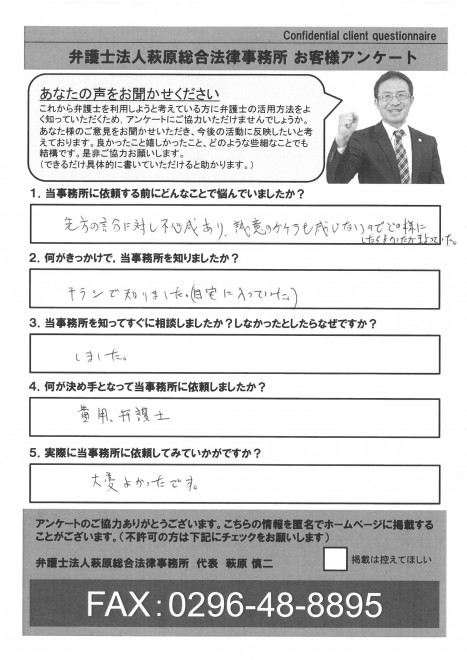 Confidential client questionnaire
弁護士法人萩原総合法律事務所 お客様アンケート
あなたの声をお聞かせください
これから弁護士を利用しようと考えている方に弁護士の活用方法をよ
く知っていただくため、アンケートにご協力いただけませんでしょうか。
あなた様のご意見をお聞かせいただき、今後の活動に反映したいと考
えております。良かったことと嬉しかったこと、どのような些細なことでも
結構です。是非ご協力お願いします。
(できるだけ具体的に書いていただけると助かります。)
1. 当事務所に依頼する前にどんなことで悩んでいましたか?
先方の言分に対し不信感あり、誠意のカケラも感じないのでどの様に
したらよいか迷っていた。
2. 何がきっかけで、当事務所を知りましたか?
チラシで知りました。(自宅に入っていた。)
3. 当事務所を知ってすぐに相談しましたか?しなかったとしたらなぜですか?
しました。
4. 何が決め手となって当事務所に依頼しましたか?
費用、弁護士
5. 実際に当事務所に依頼してみていかがですか?
大変よかったです。
アンケートのご協力ありがとうございます。こちらの情報を匿名でホームページに掲載する
ことがございます。(不許可の方は下記にチェックをお願いします)
弁護士法人萩原総合法律事務所 代表 萩原 慎二
掲載は控えてほしい
FAX:0296-48-8895